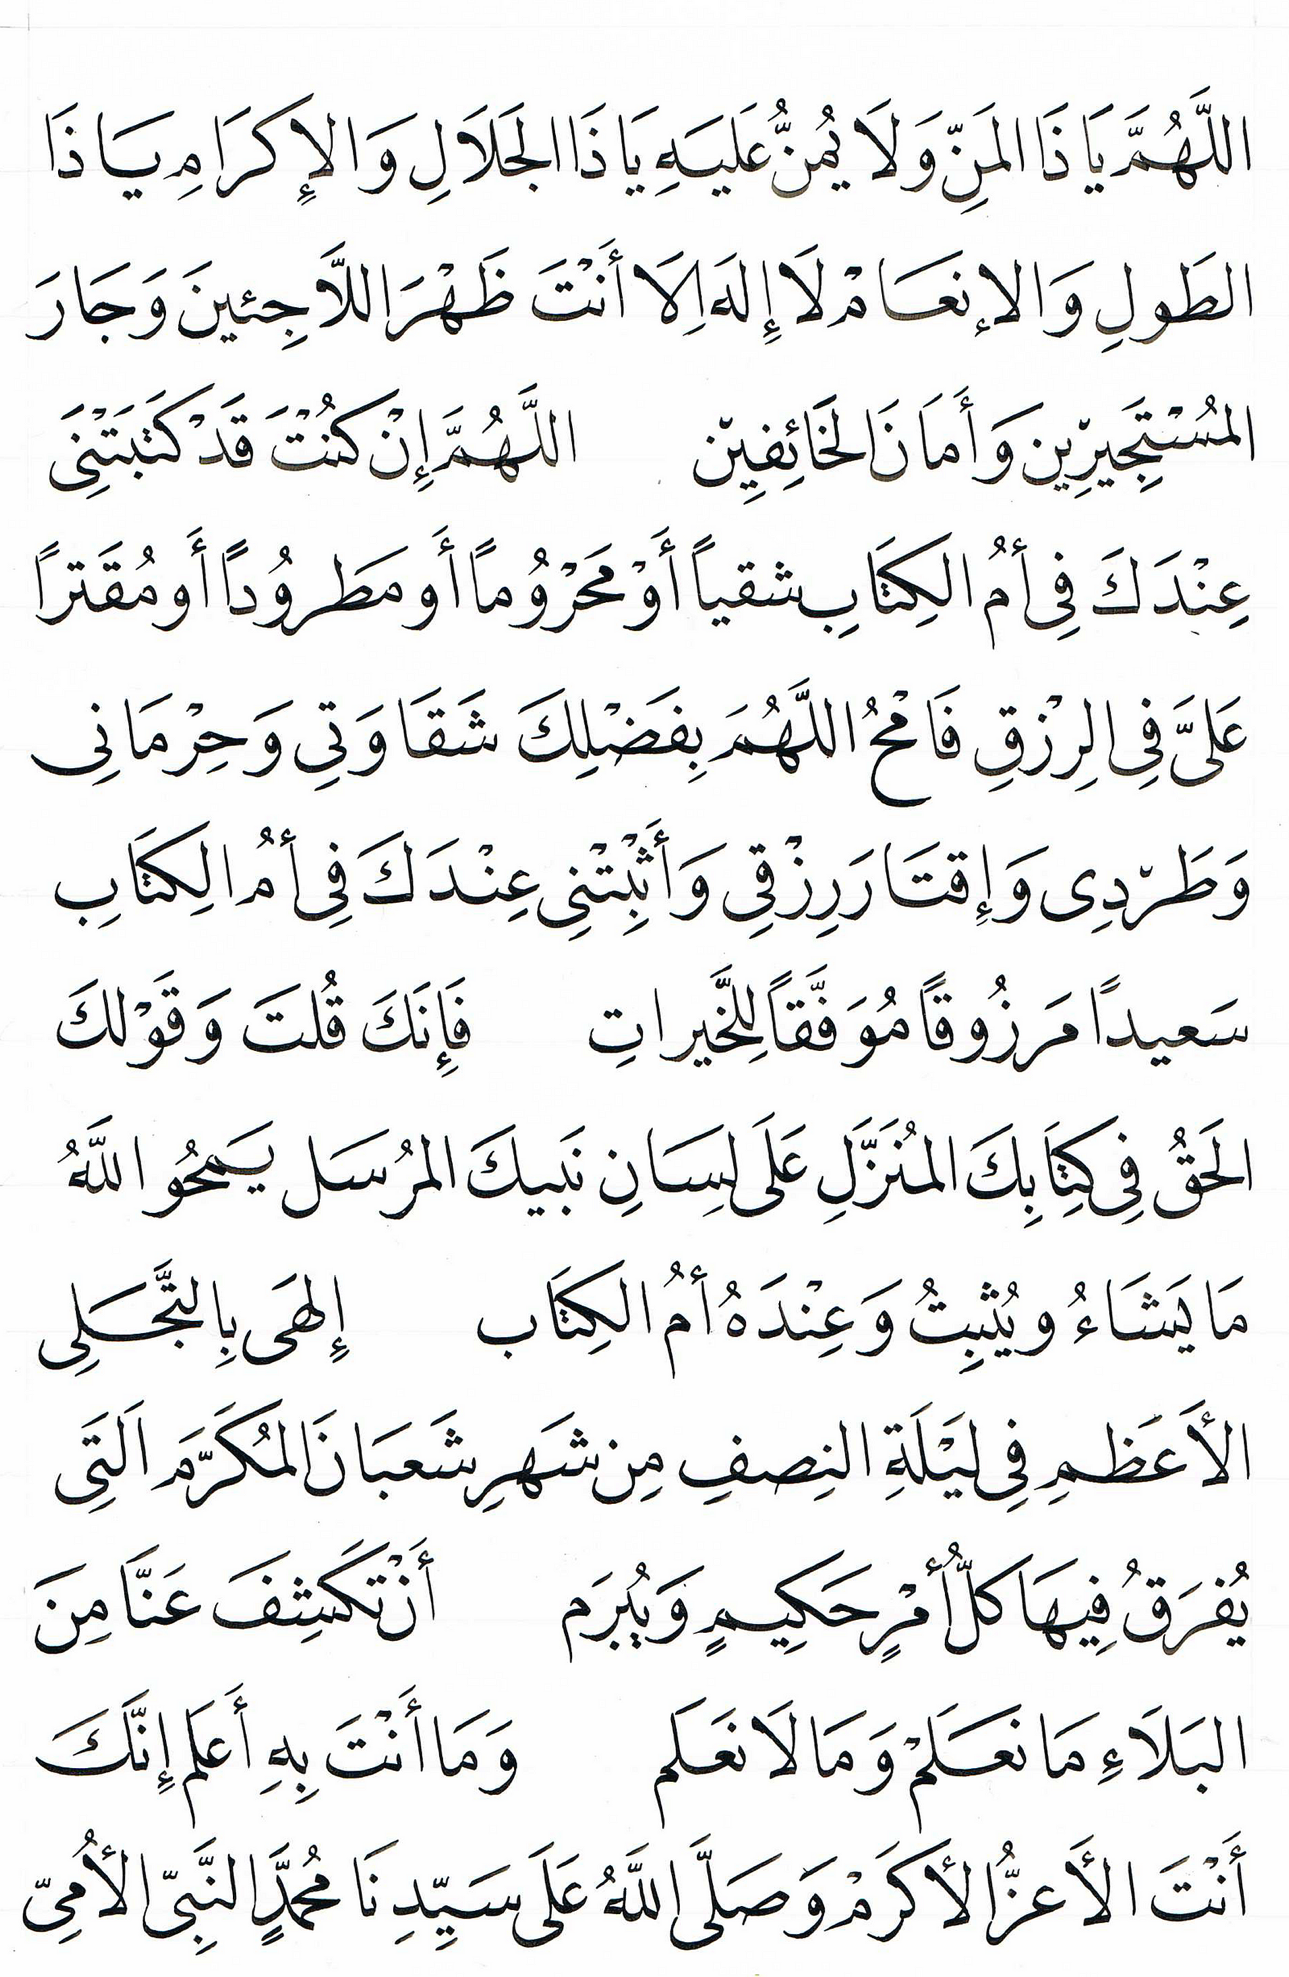 اللَّهُمَّ يَا ذَا المَنِّ وَلَا يُمنُّ عَليَهِ يَا ذَا الجَلَالِ وَالإِكرَامِ يَا ذَا
الطَولِ وَالإنعَامْ لَا إِلهَ اِلَا أَنْتَ ظَهْرَ اللَّاجِئينَ وَجَارَ
المُسْتَجِيرِين وَأَمَانَ الخَائِفِيْن اللَّهُمَّ إِنْ كُنْتَ قَدْ كَتَبَتْنَِى
عِنْدَكَ فِى أمُ الكِتَابِ شقياً أَوْ مَحْرُوماً أَو مَطرُوداً أَو مُقَتراً
عَلىَّ فِى الرِزْقِ فَامْحُ اللَّهُمَ بِفَضْلِكَ شَقَاوَتِي وَحِرْمَانِى
وَطَرْدِى وَإِقتَارَ رِزْقِي وَأَثبِتْنِى عِنْدَكَ فِى أمُ الكِتَابِ
سَعيدًا مَرزُوقاً مُوَفَّقاً لِلخَّيراتِ فَإِنَكَ قُلتَ وَقَوْلكَ
الحَقُ فِى كِتَابِكَ المُنَزَّلِ عَلَى لِسَانِ نَبيكَ المرُسَل يَمحُو اللَّهُ
مَا يَشَاءُ ويُثبِتُ وَعِنْدَهُ أمُ الكِتَاب إِلهَى بِالتَّجَلِى
الأَعَظمِ فِى ليَْلَةِ النِصفِ مِن شَهرِ شَعبَانَ المُكَرَّم اَلتَِى
يُفرَقُ فِيهَا كلُّ أمْرٍ حَكِيمٍ وَيُبرَم أَنْ تَكَشِفَ عَنَّا مِنَ
البَلَاءِ مَا نَعَلَمْ وَمَا لَا نَعَلَم وَمَا أَنْتَ بِهِ أَعلَم إِنَّكَ
أَنْتَ الأَعزُّ الأكَرَمْ وَصَلَّى اللَّهُ عَلَى سَيِّدِنَا مُحمَدٍَّ النَّبِىّ الأُمِىّ